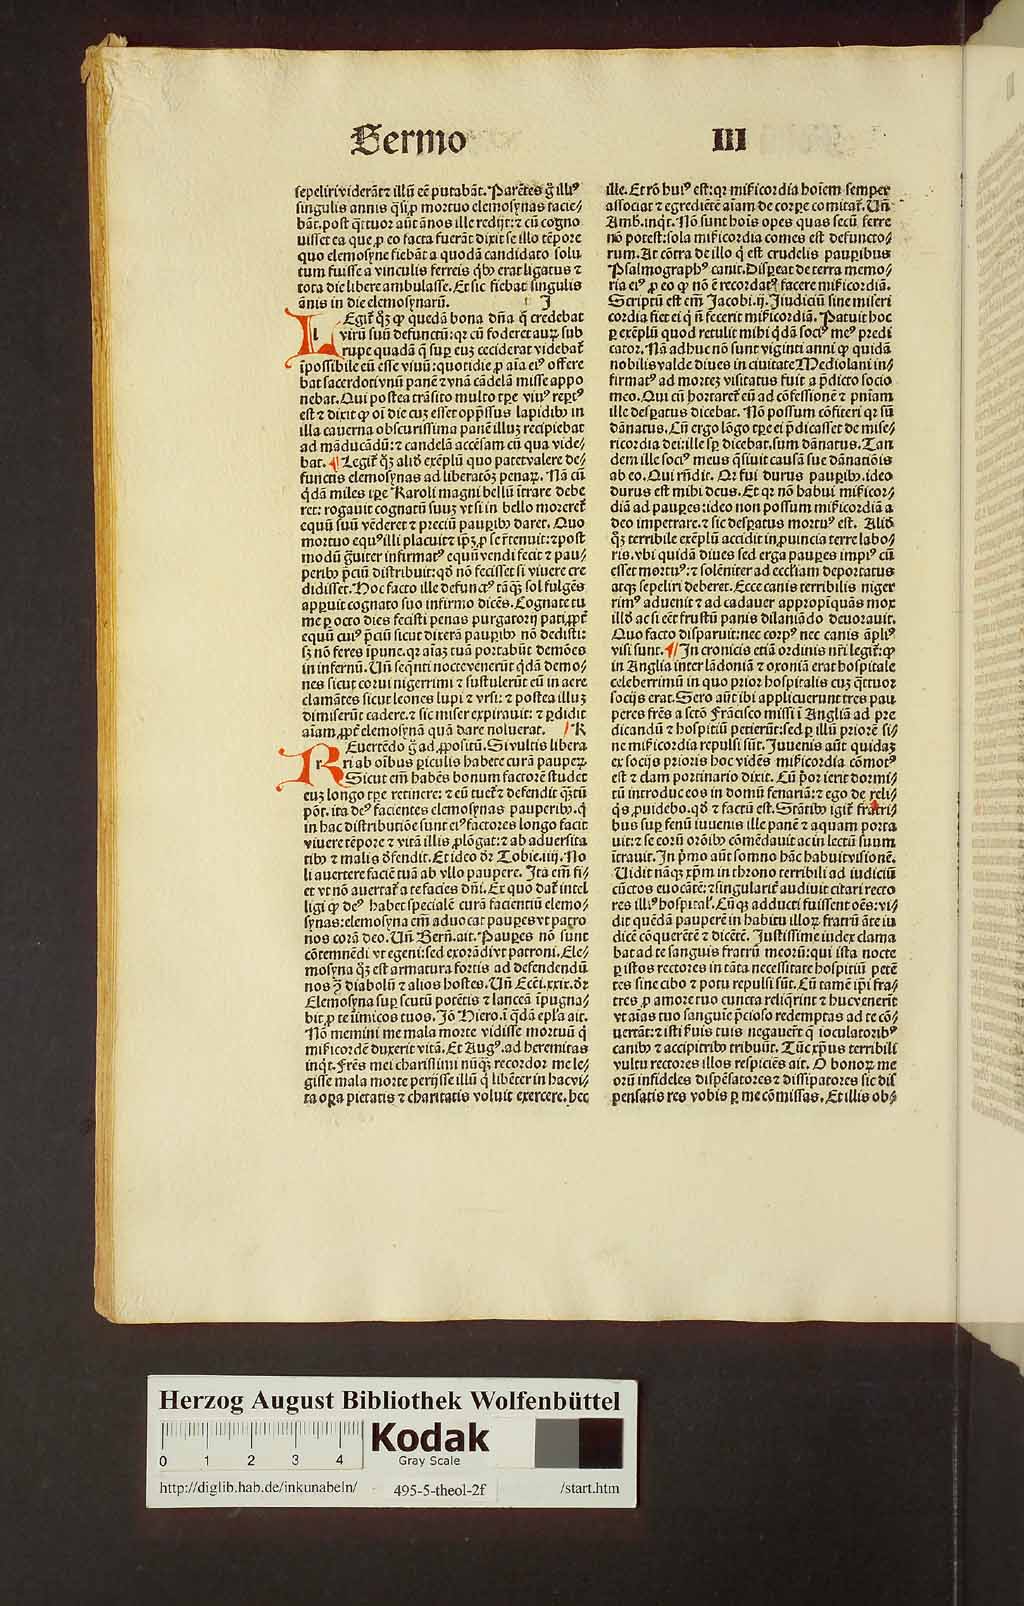 Sermo III
sepeliri viderāt ⁊ illū eē putabāt. Parētes ḡ illiꝰ
singulis annis q̄si ꝓ mortuo elemosynas facie⸗
bāt. post q̄ttuor aūt ānos ille redijt: ⁊ cū cogno
uisset ea que ꝓ eo facta fuerāt dixit se illo tēpore
quo elemosyne fiebāt a quodā candidato solu
tum fuisse a vinculis ferreis q̄bꝰ erat ligatus ⁊
tota die libere ambulasse. Et sic fiebat singulis
ānis in die elemosynarū. I
LEgit̄ q̄ꝫ ꝙ quedā bona dn̄a q̄ credebat
virū suū defunctū: qꝛ cū foderet auꝝ sub
rupe quadā q̄ suꝑ euꝫ ceciderat videbat̄
īpossibile eū esse viuū: quotidie ꝓ aīa eiꝰ offere
bat sacerdoti vnū panē ⁊ vnā cādelā misse appo
nebat. Qui postea trāsito multo tꝑe viuꝰ reꝑtꝰ
est ⁊ dixit ꝙ oī die cuꝫ esset opp̄ssus lapidibꝰ in
illa cauerna obscurissima panē illuꝫ recipiebat
ad māducādū: ⁊ candelā accēsam cū qua vide⸗
bat. ¶ Legit̄ q̄ꝫ aliđ exēplū quo patet valere de⸗
functis elemosynas ad liberatōꝫ penaꝝ. Nā cū
q̄dā miles tꝑe Karoli magni bellū ītrare debe
ret: rogauit cognatū suuꝫ vt si in bello moreret̄
equū suū vēderet ⁊ preciū pauꝑibꝰ daret. Quo
mortuo equꝰ illi placuit ⁊ ip̄ꝫ ꝓ se r̄tenuit: ⁊ post
modū ḡuiter infirmatꝰ equū vendi fecit ⁊ pau⸗
peribꝰ p̄ciū distribuit: qđ nō fecisset si viuere cre
didisset. Hoc facto ille defunctꝰ tāq̄ꝫ sol fulgēs
apꝑuit cognato suo infirmo dicēs. Cognate tu
me ꝑ octo dies fecisti penas purgatorij pati ꝓpt̄
equū cuiꝰ p̄ciū sicut dixerā pauꝑibꝰ nō dedisti:
sꝫ nō feres īpune. qꝛ aīaꝫ tuā portabūt demōes
in infernū. Vn̄ seq̄nti nocte venerūt q̄dā demo⸗
nes sicut corui nigerrimi ⁊ sustulerūt eū in aere
clamātes sicut leones lupi ⁊ vrsi: ⁊ postea illuꝫ
dimiserūt cadere. ⁊ sic miser expirauit: ⁊ ꝑdidit
aīam ꝓpt̄ elemosynā quā dare noluerat. K
REuertēdo ḡ ad ꝓpositū. Si vultis libera
ri ab oībus ꝑiculis habete curā paupeꝝ.
Sicut em̄ habēs bonum factorē studet
euꝫ longo tꝑe retinere: ⁊ eū tuet̄ ⁊ defendit q̄stū
pōt. ita deꝰ facientes elemosynas pauperibꝰ. q̄
in hac distributiōe sunt eiꝰ factores longo facit
viuere tēpore ⁊ vitā illis ꝓlōgat: ⁊ ab aduersita
tibꝰ ⁊ malis đfendit. Et ideo đr Tobie. iiij. No
li auertere faciē tuā ab vllo paupere. Ita em̄ fi⸗
et vt nō auertat̄ a te facies dn̄i. Ex quo dat̄ intel
ligi ꝙ deꝰ habet specialē curā facientiū elemo⸗
synas: elemosyna em̄ aduocat pauꝑes vt patro
nos corā deo. Vn̄ Bern̄. ait. Pauꝑes nō sunt
cōtemnēdi vt egeni: sed exorādi vt patroni. Ele⸗
mosyna q̄ꝫ est armatura fortis ad defendendū
nos ꝯ̄ diabolū ⁊ alios hostes. Vn̄ Ecci. xxix. đr
Elemosyna suꝑ scutū potētis ⁊ lanceā īpugna⸗
bit ꝓ te īimicos tuos. Iō Hiero. ī q̄dā epl̄a ait.
Nō memini me mala morte vidisse mortuū q̄
mīs̄icordē duxerit vitā. Et Augꝰ. ad heremitas
inq̄t. Fr̄es mei charissimi nūq̄ꝫ recordor me le⸗
gisse mala morte perijsse illū q̄ libēter in hac vi⸗
ta oꝑa pietatis ⁊ charitatis voluit exercere. hec
ille. Et rō huiꝰ est: qꝛ mīs̄icordia hoīem semper
associat ⁊ egrediētē aīam de corꝑe comitat̄. Vn̄
Amb. inq̄t. Nō sunt hoīs opes quas secū ferre
nō potest: sola mīs̄icordia comes est defuncto⸗
rum. At cōtra de illo q̄ est crudelis pauꝑibus
Psalmographꝰ canit. Disꝑeat de terra memo⸗
ria eiꝰ ꝓ eo ꝙ nō ē recordatꝰ facere mīs̄icordiā.
Scriptū est em̄ Jacobi. ij. Iudiciū sine miseri
cordia fiet ei q̄ nō fecerit mīs̄icordiā. Patuit hoc
ꝑ exēplū quod retulit mihi q̄dā sociꝰ meꝰ predi
cator. Nā adhuc nō sunt viginti anni ꝙ quidā
nobilis valde diues in ciuitate Mediolani in⸗
firmatꝰ ad morteꝫ visitatus fuit a p̄dicto socio
meo. Qui cū hortaret̄ eū ad cōfessionē ⁊ pn̄iam
ille desꝑatus dicebat. Nō possum cōfiteri qꝛ sū
dānatus. Cū ergo lōgo tꝑe ei p̄dicasset de mise⸗
ricordia dei: ille sꝑ dicebat. sum dānatus. Tan
dem ille sociꝰ meus q̄siuit causā sue dānatiōis
ab eo. Qui rn̄dit. Qꝛ fui durus pauꝑibꝰ. ideo
durus est mihi deus. Et qꝛ nō habui mīs̄icor⸗
diā ad pauꝑes: ideo non possum mīs̄icordiā a
deo impetrare. ⁊ sic desꝑatus mortuꝰ est. Aliđ
q̄ꝫ terribile exēplū accidit in ꝓuincia terre labo⸗
ris. vbi quidā diues sed erga pauꝑes impiꝰ cū
esset mortuꝰ: ⁊ solēniter ad eccl̄iam deportatus
atqꝫ sepeliri deberet. Ecce canis terribilis niger
rimꝰ aduenit ⁊ ad cadauer appropīquās mox
illđ ac si eēt frustū panis dilaniādo deuorauit.
Quo facto disparuit: nec corpꝰ nec canis āpliꝰ
visi sunt. ¶ In cronicis etiā ordinis nr̄i legit̄: ꝙ
in Anglia inter lādoniā ⁊ oxoniā erat hospitale
celeberrimū in quo prior hospitalis cuꝫ q̄ttuor
socijs erat. Sero aūt ibi applicuerunt tres pau
peres fr̄es a sctō Frācisco missi ī Angliā ad pre
dicandū ⁊ hospitiū petierūt: sed ꝑ illū priorē si⸗
ne mīs̄icordia repulsi sūt. Juuenis aūt quidaꝫ
ex socijs prioris hoc vidēs mīs̄icordia cōmotꝰ
est ⁊ clam portinario dixit. Cū p̄or ierit dormi⸗
tū introduc eos in domū fenariā: ⁊ ego de reli⸗
q̄s ꝓuidebo. qđ ⁊ factū est. Stātibꝰ igit̄ fratri⸗
bus suꝑ fenū iuuenis ille panē ⁊ aquam porta
uit: ⁊ se eorū orōibꝰ cōmēdauit ac in lectū suum
ītrauit. In p̄mo aūt somno hāc habuit visionē.
Uidit nāqꝫ xp̄m in throno terribili ad iudiciū
cūctos euocātē: ⁊ singularit̄ audiuit citari recto
res illiꝰ hospitaľ. Cūqꝫ adducti fuissent oēs: vi⸗
dit quēdā pauperē in habitu illoꝝ fratrū āte iu
dicē cōquerētē ⁊ dicētē. Justissime iudex clama
bat ad te sanguis fratrū meorū: qui ista nocte
ꝑ istos rectores in tāta necessitate hospitiū petē
tes sine cibo ⁊ potu repulsi sūt. Cū tamē ip̄i fra⸗
tres ꝓ amore tuo cuncta reliq̄rint ⁊ huc venerīt
vt aīas tuo sanguīe p̄cioso redemptas ad te cō⸗
uertāt: ⁊ isti s̄uis tuis negauer̄t q̄ ioculatoribꝰ
canibꝰ ⁊ accipitribꝰ tribuūt. Tūc xp̄us terribili
vultu rectores illos respiciēs ait. O bonoꝝ me
orū infideles dispēsatores ⁊ dissipatores sic dis
pensatis res vobis ꝑ me cōmissas. Et illis ob⸗
Herzog August Bibliothek Wolfenbüttel
0 1 2 3 4
Kodak
Gray Scale
http://diglib.hab.de/inkunabeln/ 495-5-theol-2f /start.htm